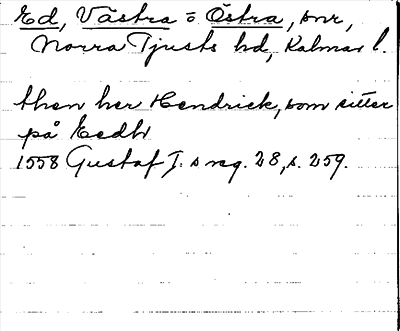 Ed, Västra o Östra, snr,
Norra Tjusts hd, Kalmar l.
then her Hendrick, som sitter
på Eedh
1558 Gustaf I:s reg. 28, s. 259.